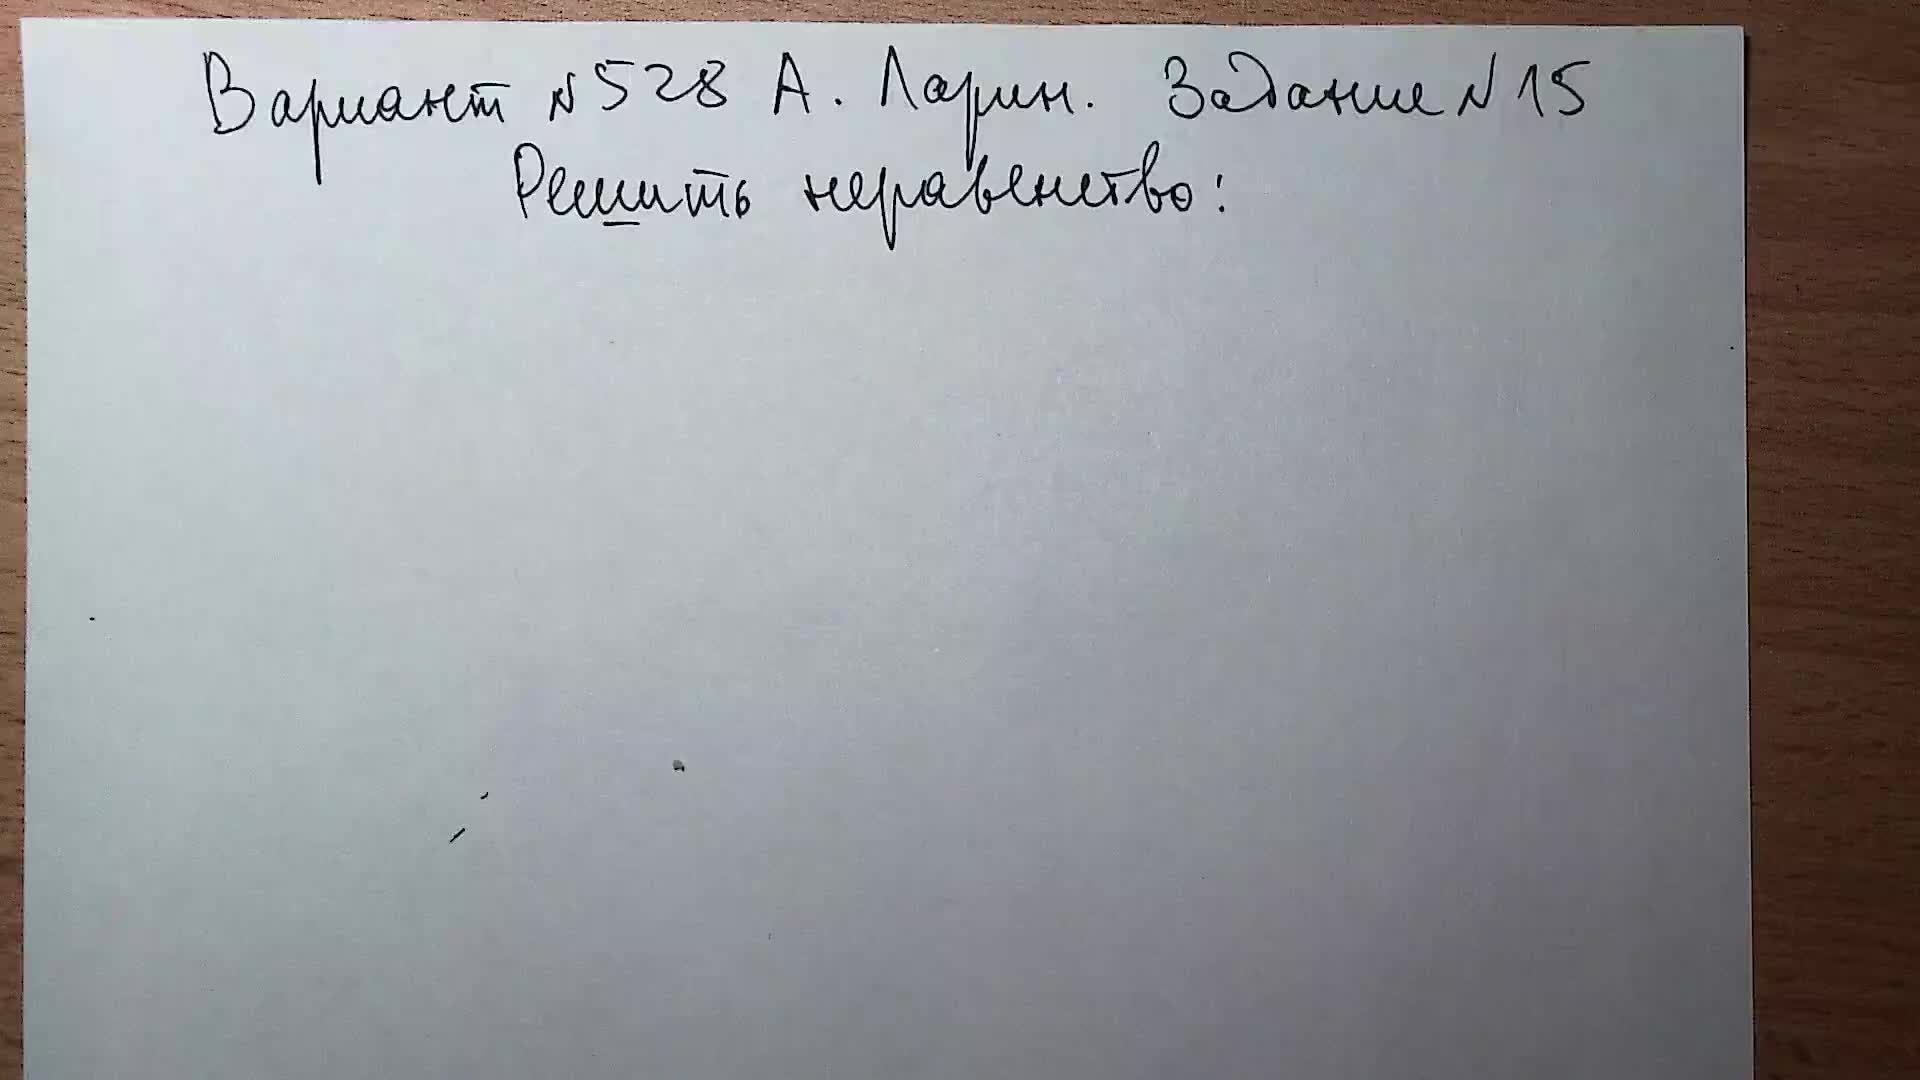 Вариант №528 А. Ларин. Задание №15
Решить неравенство: